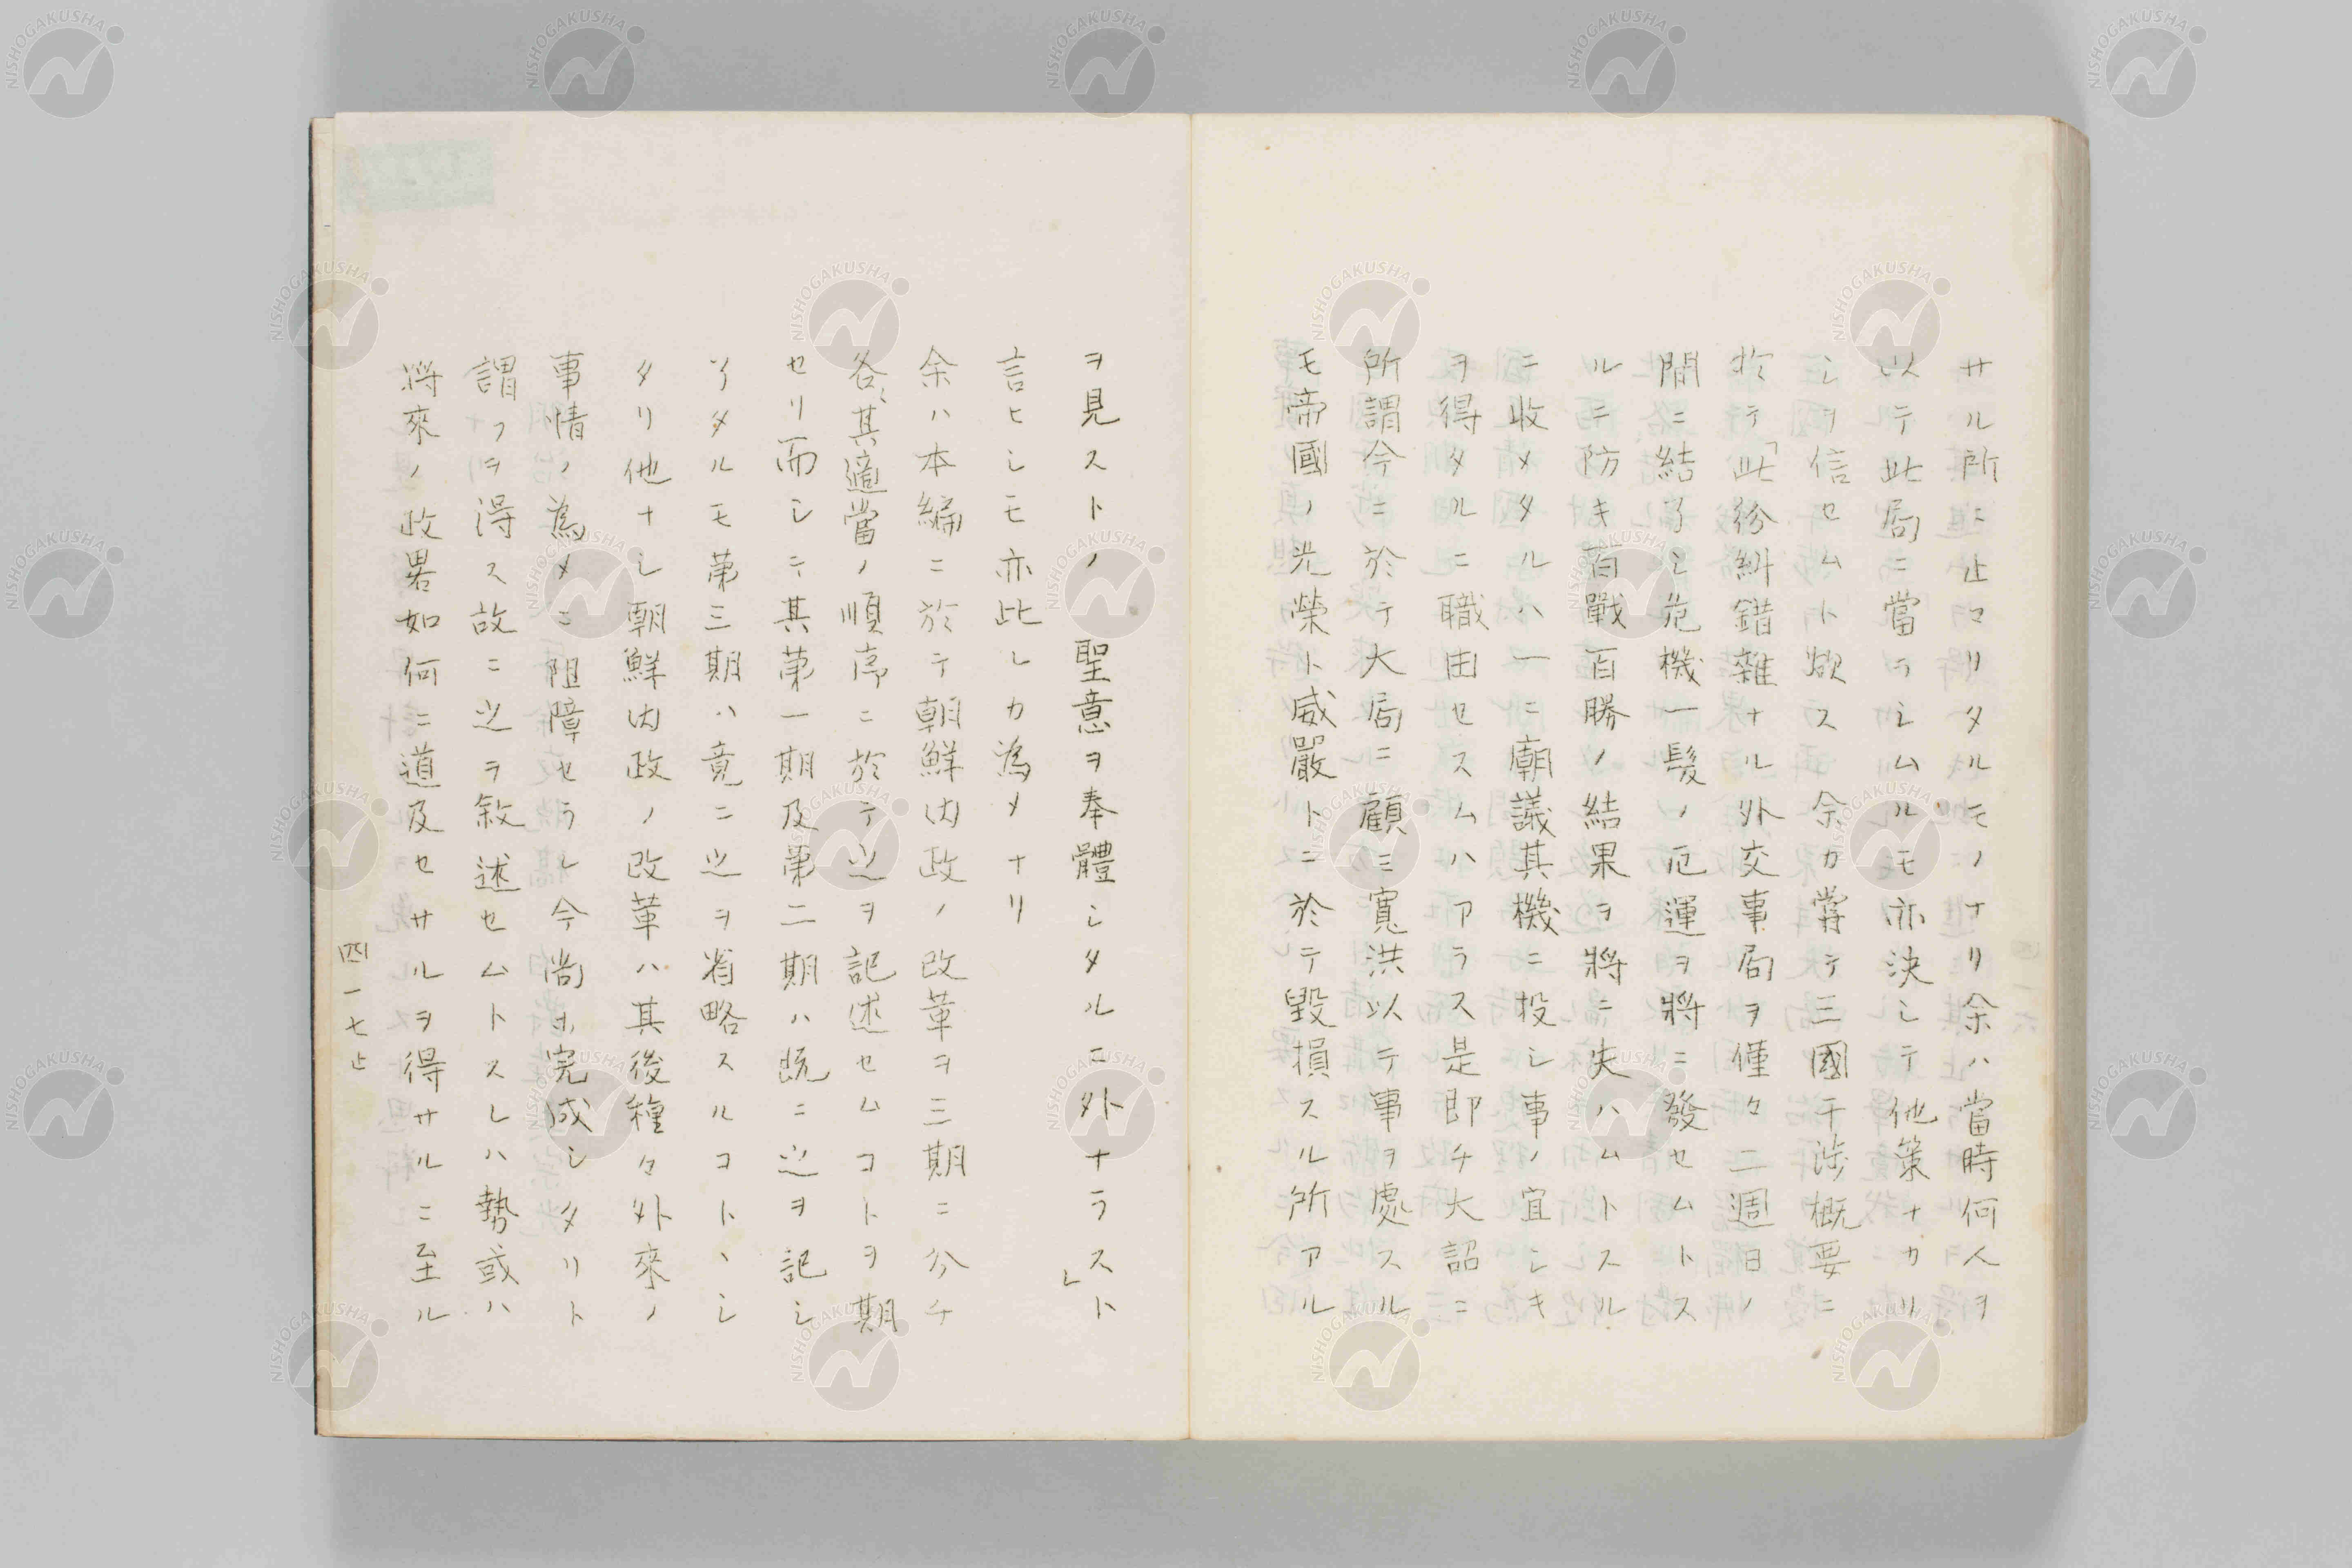 サル所ニ止マリタルモノナリ余ハ當時何人ヲ
以テ此局ニ當ラシムルモ亦決シテ他策ナカリ
シヲ信セムト欲ス　余カ嘗テ三國干渉概要ニ
於テ「此紛糾錯雜ナル外交事局ヲ僅々二週日ノ
間ニ結了シ危機一髮ノ厄運ヲ將ニ發セムトス
ルニ防キ百戰百勝ノ結果ヲ將ニ失ハムトスル
ニ收メタルハ一ニ廟議其機ニ投シ事ノ宜シキ
ヲ得タルニ職由セスムハアラス是即チ大詔ニ
所謂今ニ於テ大局ニ顧ミ寬洪以テ事ヲ處スル
モ帝國ノ光榮ト威嚴トニ於テ毀損スル所アル
ヲ見ストノ　聖意ヲ奉體シタルニ外ナラスト」
言ヒシモ亦此レカ為メナリ
余ハ本編ニ於テ朝鮮內政ノ改革ヲ三期ニ分チ
各〻其適當ノ順序ニ於テ之ヲ記述セムコトヲ期
セリ而シテ其第一期及第二期ハ既ニ之ヲ記シ
了リタルモ第三期ハ竟ニ之ヲ省略スルコトヽシ
タリ他ナシ朝鮮內政ノ改革ハ其後種々外來ノ
事情ノ為メニ阻障セラレ今尚ホ完成シタリト
謂フヲ得ス故ニ之ヲ敘述セムトスレハ勢或ハ
將來ノ政畧如何ニ道及セサルヲ得サルニ至ル
四一七止
NISHOGAKUSHA